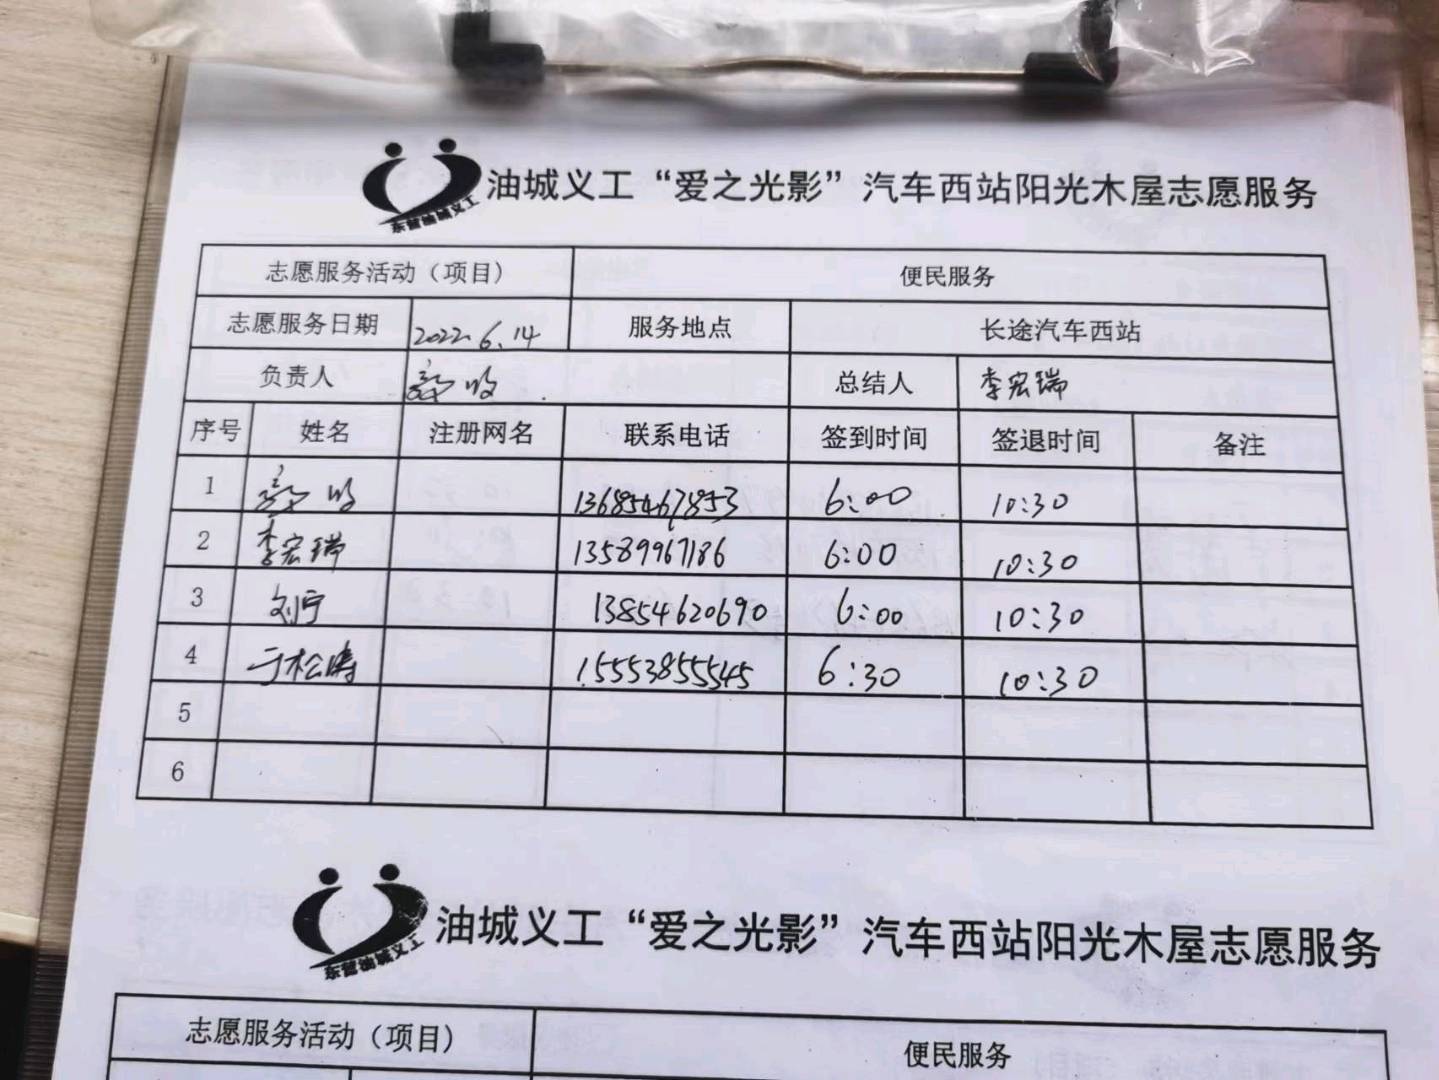 东营油城义工
油城义工“爱之光影”汽车西站阳光木屋志愿服务
志愿服务活动（项目） 便民服务
志愿服务日期 2022.6.14 服务地点 长途汽车西站
负责人 总结人 李宏瑞
序号 姓名 注册网名 联系电话 签到时间 签退时间 备注
1 13685467853 6:00 10:30
2 李宏瑞 13589967186 6:00 10:30
3 刘宁 13854620690 6:00 10:30
4 于松涛 15553855545 6:30 10:30
5
6
东营油城义工
油城义工“爱之光影”汽车西站阳光木屋志愿服务
志愿服务活动（项目） 便民服务